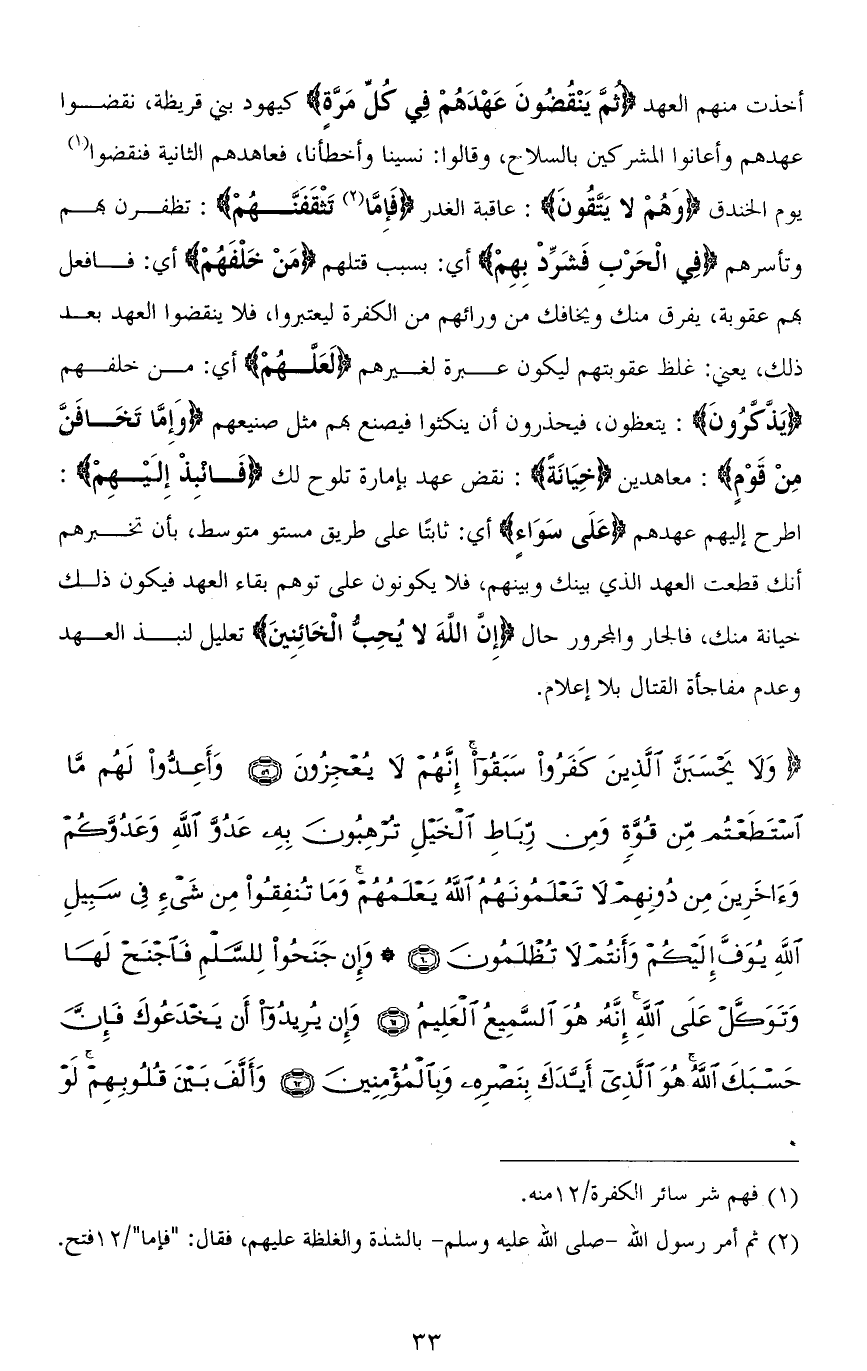 أخذت منهم العهد ﴿ثُمَّ يَنْقُضُونَ عَهْدَهُمْ فِي كُلِّ مَرَّةٍ﴾ كيهود بني قريظة، نقضوا
عهدهم وأعانوا المشركين بالسلاح، وقالوا: نسينا وأخطأنا، فعاهدهم الثانية فنقضوا(١)
يوم الخندق ﴿وَهُمْ لا يَتَّقُونَ﴾ : عاقبة الغدر ﴿فَإِمَّا(٢) تَثْقَفَنَّهُمْ﴾ : تظفرن بهم
وتأسرهم ﴿فِي الْحَرْبِ فَشَرِّدْ بِهِمْ﴾ أي: بسبب قتلهم ﴿مَنْ خَلْفَهُمْ﴾ أي: فافعل
بهم عقوبة، يفرق منك ويخافك من ورائهم من الكفرة ليعتبروا، فلا ينقضوا العهد بعد
ذلك، يعني: غلظ عقوبتهم ليكون عبرة لغيرهم ﴿لَعَلَّهُمْ﴾ أي: من خلفهم
﴿يَذَّكَّرُونَ﴾ : يتعظون، فيحذرون أن ينكثوا فيصنع بهم مثل صنيعهم ﴿وَإِمَّا تَخَافَنَّ
مِنْ قَوْمٍ﴾ : معاهدين ﴿خِيَانَةً﴾ : نقض عهد بإمارة تلوح لك ﴿فَانْبِذْ إِلَيْهِمْ﴾ :
اطرح إليهم عهدهم ﴿عَلَى سَوَاءٍ﴾ أي: ثابتًا على طريق مستو متوسط، بأن تخبرهم
أنك قطعت العهد الذي بينك وبينهم، فلا يكونون على توهم بقاء العهد فيكون ذلك
خيانة منك، فالجار والمجرور حال ﴿إِنَّ اللَّهَ لا يُحِبُّ الْخَائِنِينَ﴾ تعليل لنبذ العهد
وعدم مفاجأة القتال بلا إعلام.
﴿ وَلَا يَحْسَبَنَّ ٱلَّذِينَ كَفَرُواْ سَبَقُوٓاْۚ إِنَّهُمْ لَا يُعْجِزُونَ ۝٥٩ وَأَعِدُّواْ لَهُم مَّا
ٱسْتَطَعْتُم مِّن قُوَّةٍ وَمِن رِّبَاطِ ٱلْخَيْلِ تُرْهِبُونَ بِهِۦ عَدُوَّ ٱللَّهِ وَعَدُوَّكُمْ
وَءَاخَرِينَ مِن دُونِهِمْ لَا تَعْلَمُونَهُمُ ٱللَّهُ يَعْلَمُهُمْۚ وَمَا تُنفِقُواْ مِن شَىْءٍ فِى سَبِيلِ
ٱللَّهِ يُوَفَّ إِلَيْكُمْ وَأَنتُمْ لَا تُظْلَمُونَ ۝٦٠ * وَإِن جَنَحُواْ لِلسَّلْمِ فَٱجْنَحْ لَهَا
وَتَوَكَّلْ عَلَى ٱللَّهِۚ إِنَّهُۥ هُوَ ٱلسَّمِيعُ ٱلْعَلِيمُ ۝٦١ وَإِن يُرِيدُوٓاْ أَن يَخْدَعُوكَ فَإِنَّ
حَسْبَكَ ٱللَّهُۚ هُوَ ٱلَّذِىٓ أَيَّدَكَ بِنَصْرِهِۦ وَبِٱلْمُؤْمِنِينَ ۝٦٢ وَأَلَّفَ بَيْنَ قُلُوبِهِمْۚ لَوْ
(١) فهم شر سائر الكفرة/١٢منه.
(٢) ثم أمر رسول الله -صلى الله عليه وسلم- بالشدة والغلظة عليهم، فقال: "فإما"/١٢فتح.
٣٣